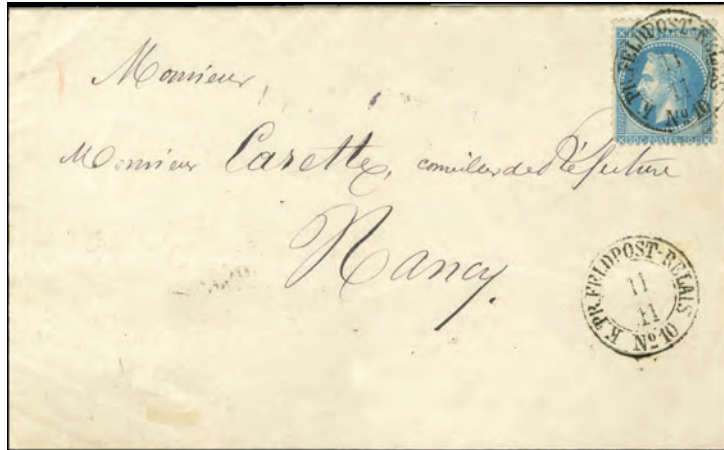 K. PR. FELDPOST-RELAIS
11
11
No 10
Monsieur,
Monsieur Carette, conseiller de Préfecture
Nancy.
K. PR. FELDPOST-RELAIS
11
11
No 10